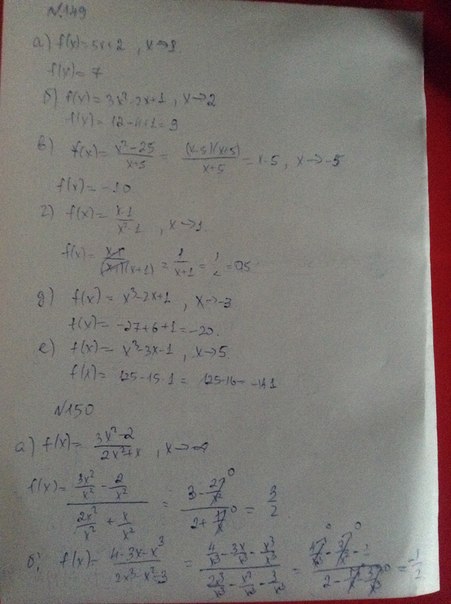 N.149
а) f(x)=5x+2, x→1
f(x)=7
б) f(x)=3x²-2x+1, x→2
f(x)=12-4+1=9
в) f(x)= x²-25/x+5 = (x-5)(x+5)/x+5 = x-5, x→-5
f(x)=-10
г) f(x)= x-1/x²-1, x→1.
f(x)= x-1/(x-1)(x+1) = 1/x+1 = 1/2 = 0,5
д) f(x)= x³-2x+1, x→-3
f(x)= -27+6+1=-20.
е) f(x)= x³-3x-1, x→5
f(x)= 125-15-1= 125-16=
N150
а) f(x)= 3x²-2/2x²+x, x→∞
f(x)= 3x²/x² - 2/x² / 2x²/x² + x/x² = 3 - 2/x² 0 / 2+ 0 = 3/2
б) f(x)= 4-3x-x³/2x³-x²-3 = 4/x³ - 3x/x³ - x³/x³ / 2x³/x³ - x²/x³ - 3/x³ = = -1/2